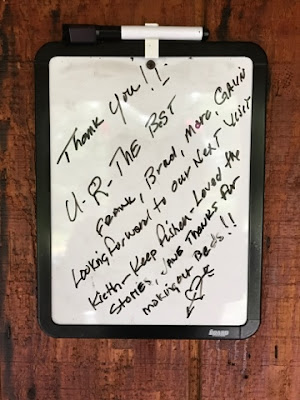 Thank You!!
U-R-THE BEST
FRANK, Brad, Marc, GAVIN
Looking forward to our NEXT Visit
Kieth-Keep Pishen-Loved the
Stories, Jane THANKS For
making our Beds!!